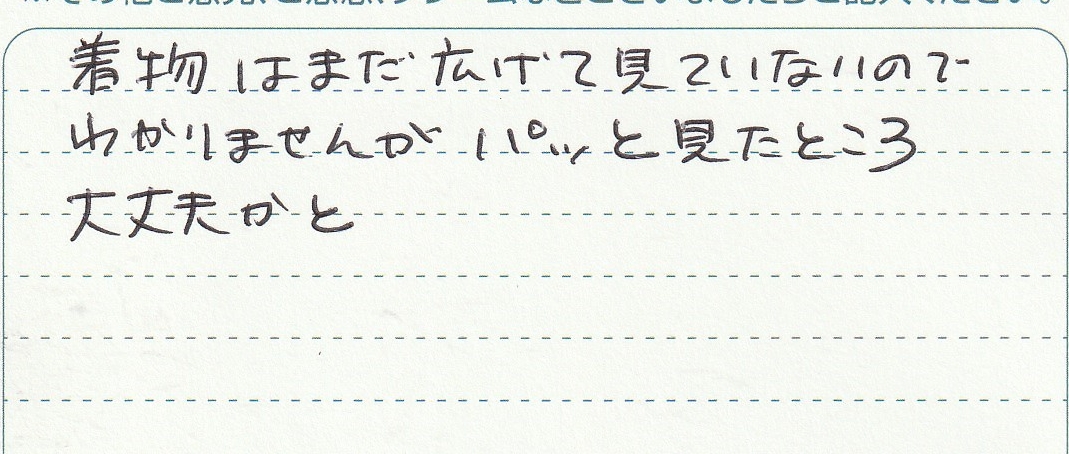 着物はまだ広げて見ていないので
わかりませんが パッと見たところ
大丈夫かと